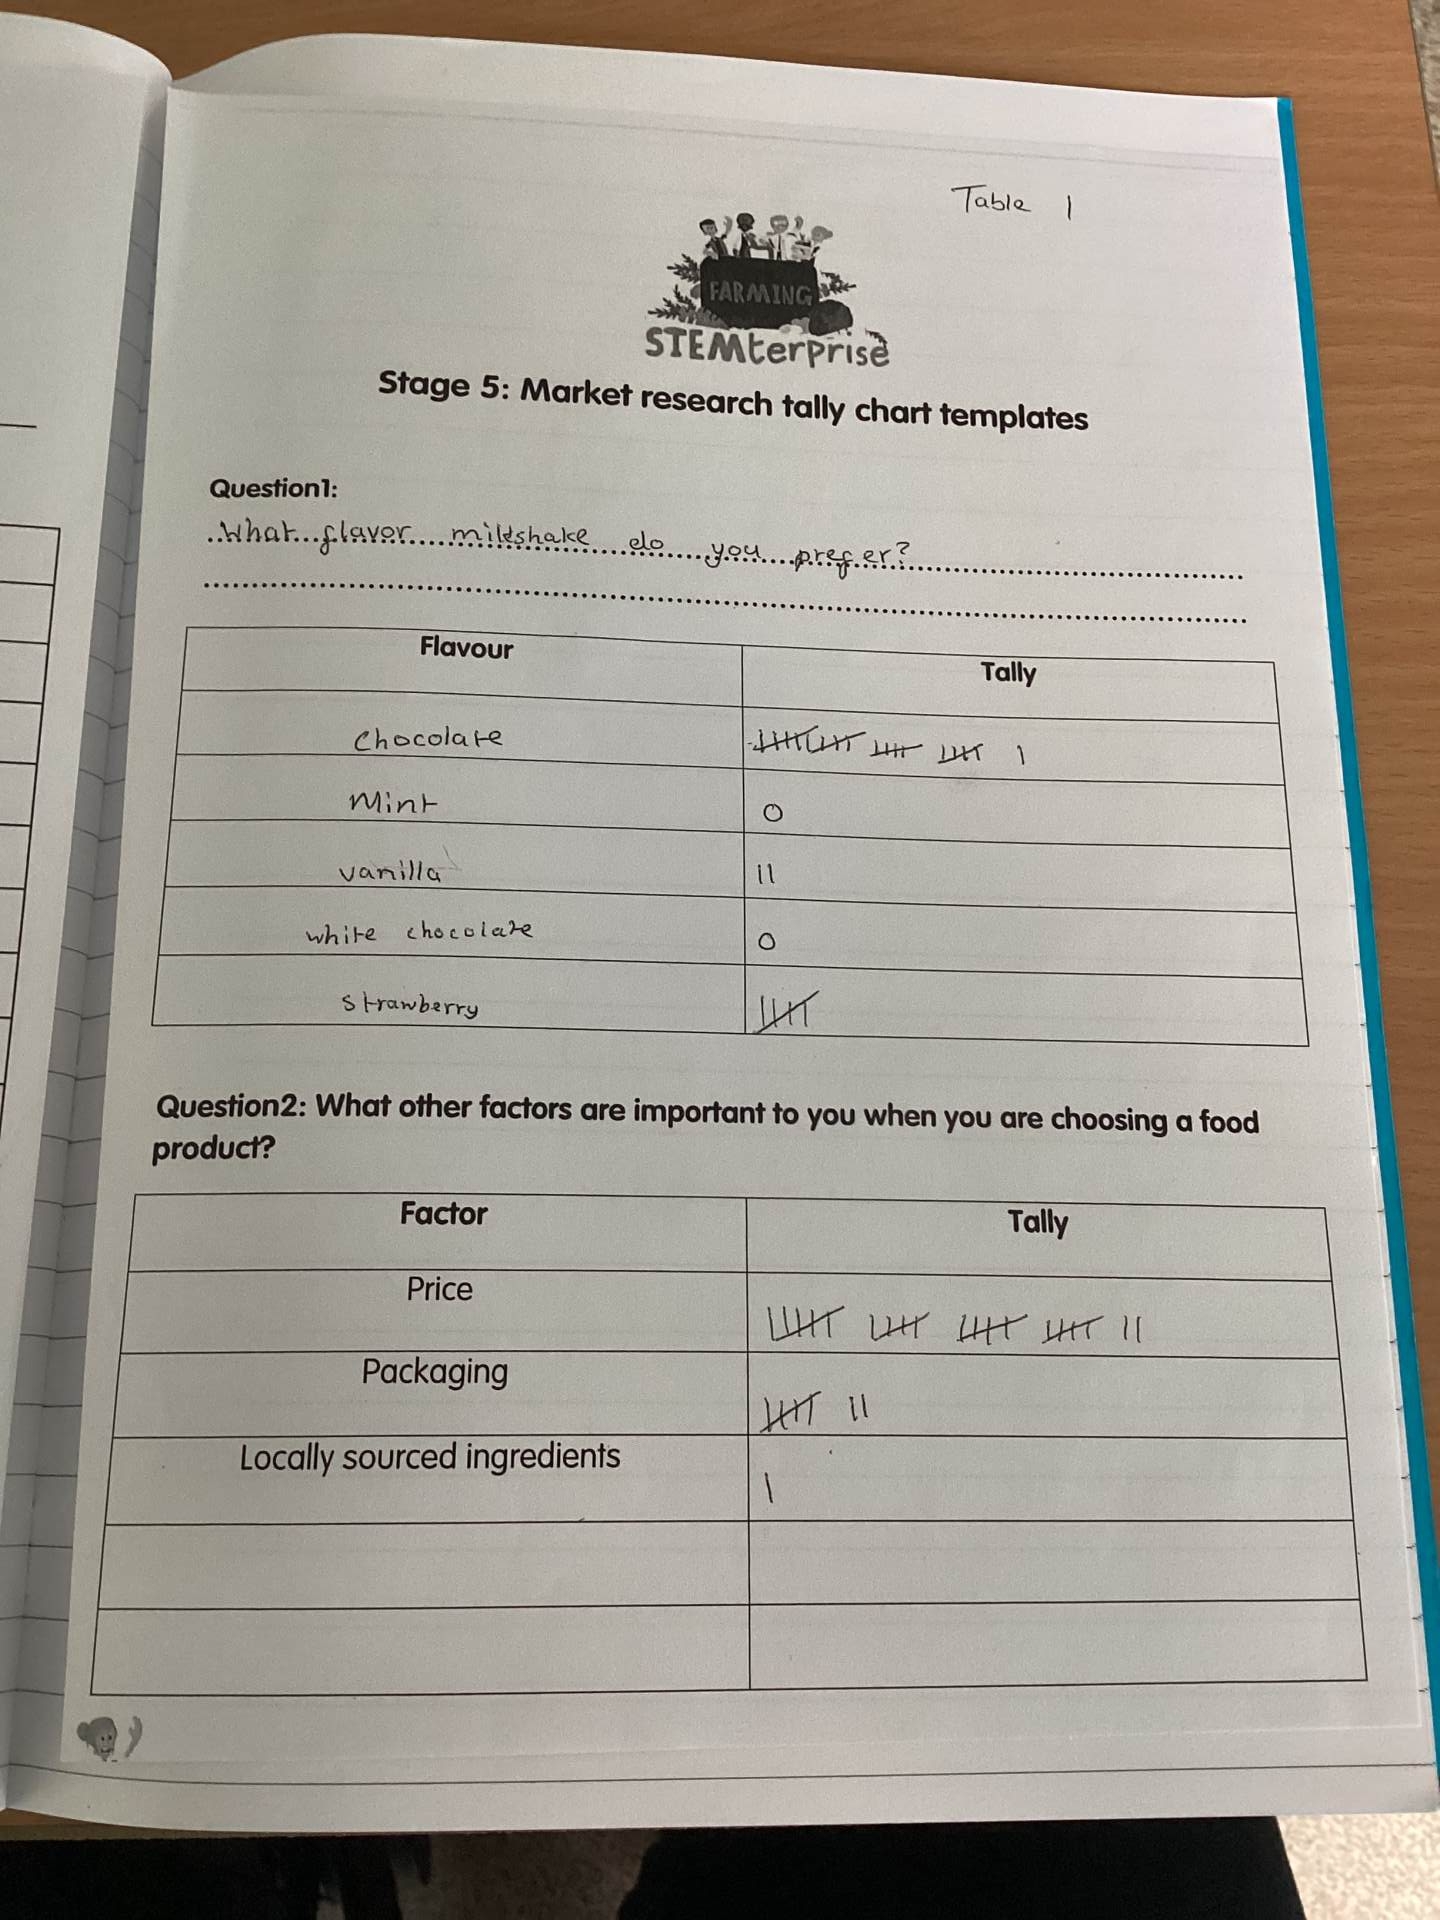 Table 1
FARMING
STEMterprise
Stage 5: Market research tally chart templates
Question1:
What flavor milkshake do you prefer?
Flavour Tally
chocolate 卌卌 卌 卌 |
Mint 0
vanilla ||
white chocolate 0
strawberry 卌
Question2: What other factors are important to you when you are choosing a food
product?
Factor Tally
Price 卌 卌 卌 卌 ||
Packaging 卌 ||
Locally sourced ingredients |